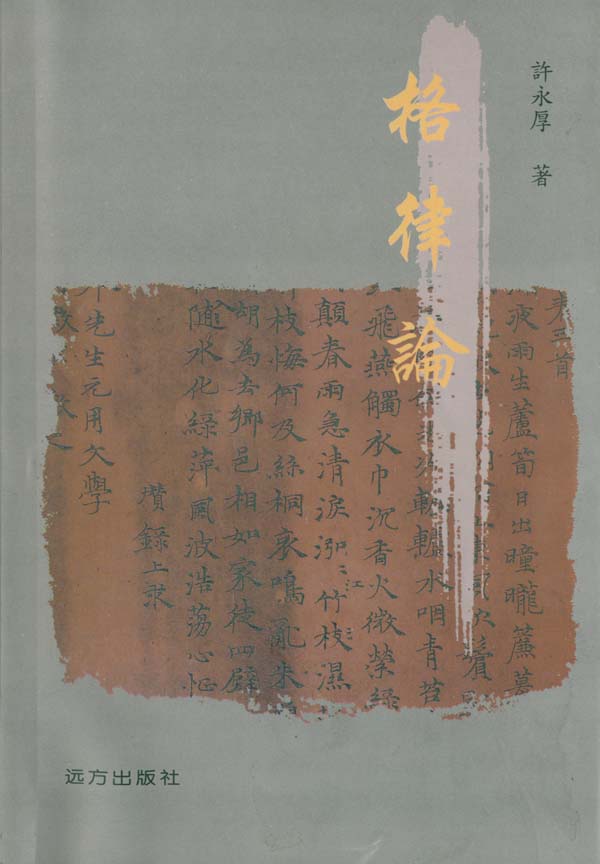 許永厚 著
格律論
首
雨生蘆筍日出曈曨簾幕
水咽青苔
飛燕觸衣巾沉香火微縈綠
顛春雨急清淚泓〻江竹枝濕
枝悔何及絲桐哀鳴亂朱
胡為去鄉邑相如家徒四壁
隨水化綠萍風波浩蕩心怔
錄上
先生元用文學
远方出版社